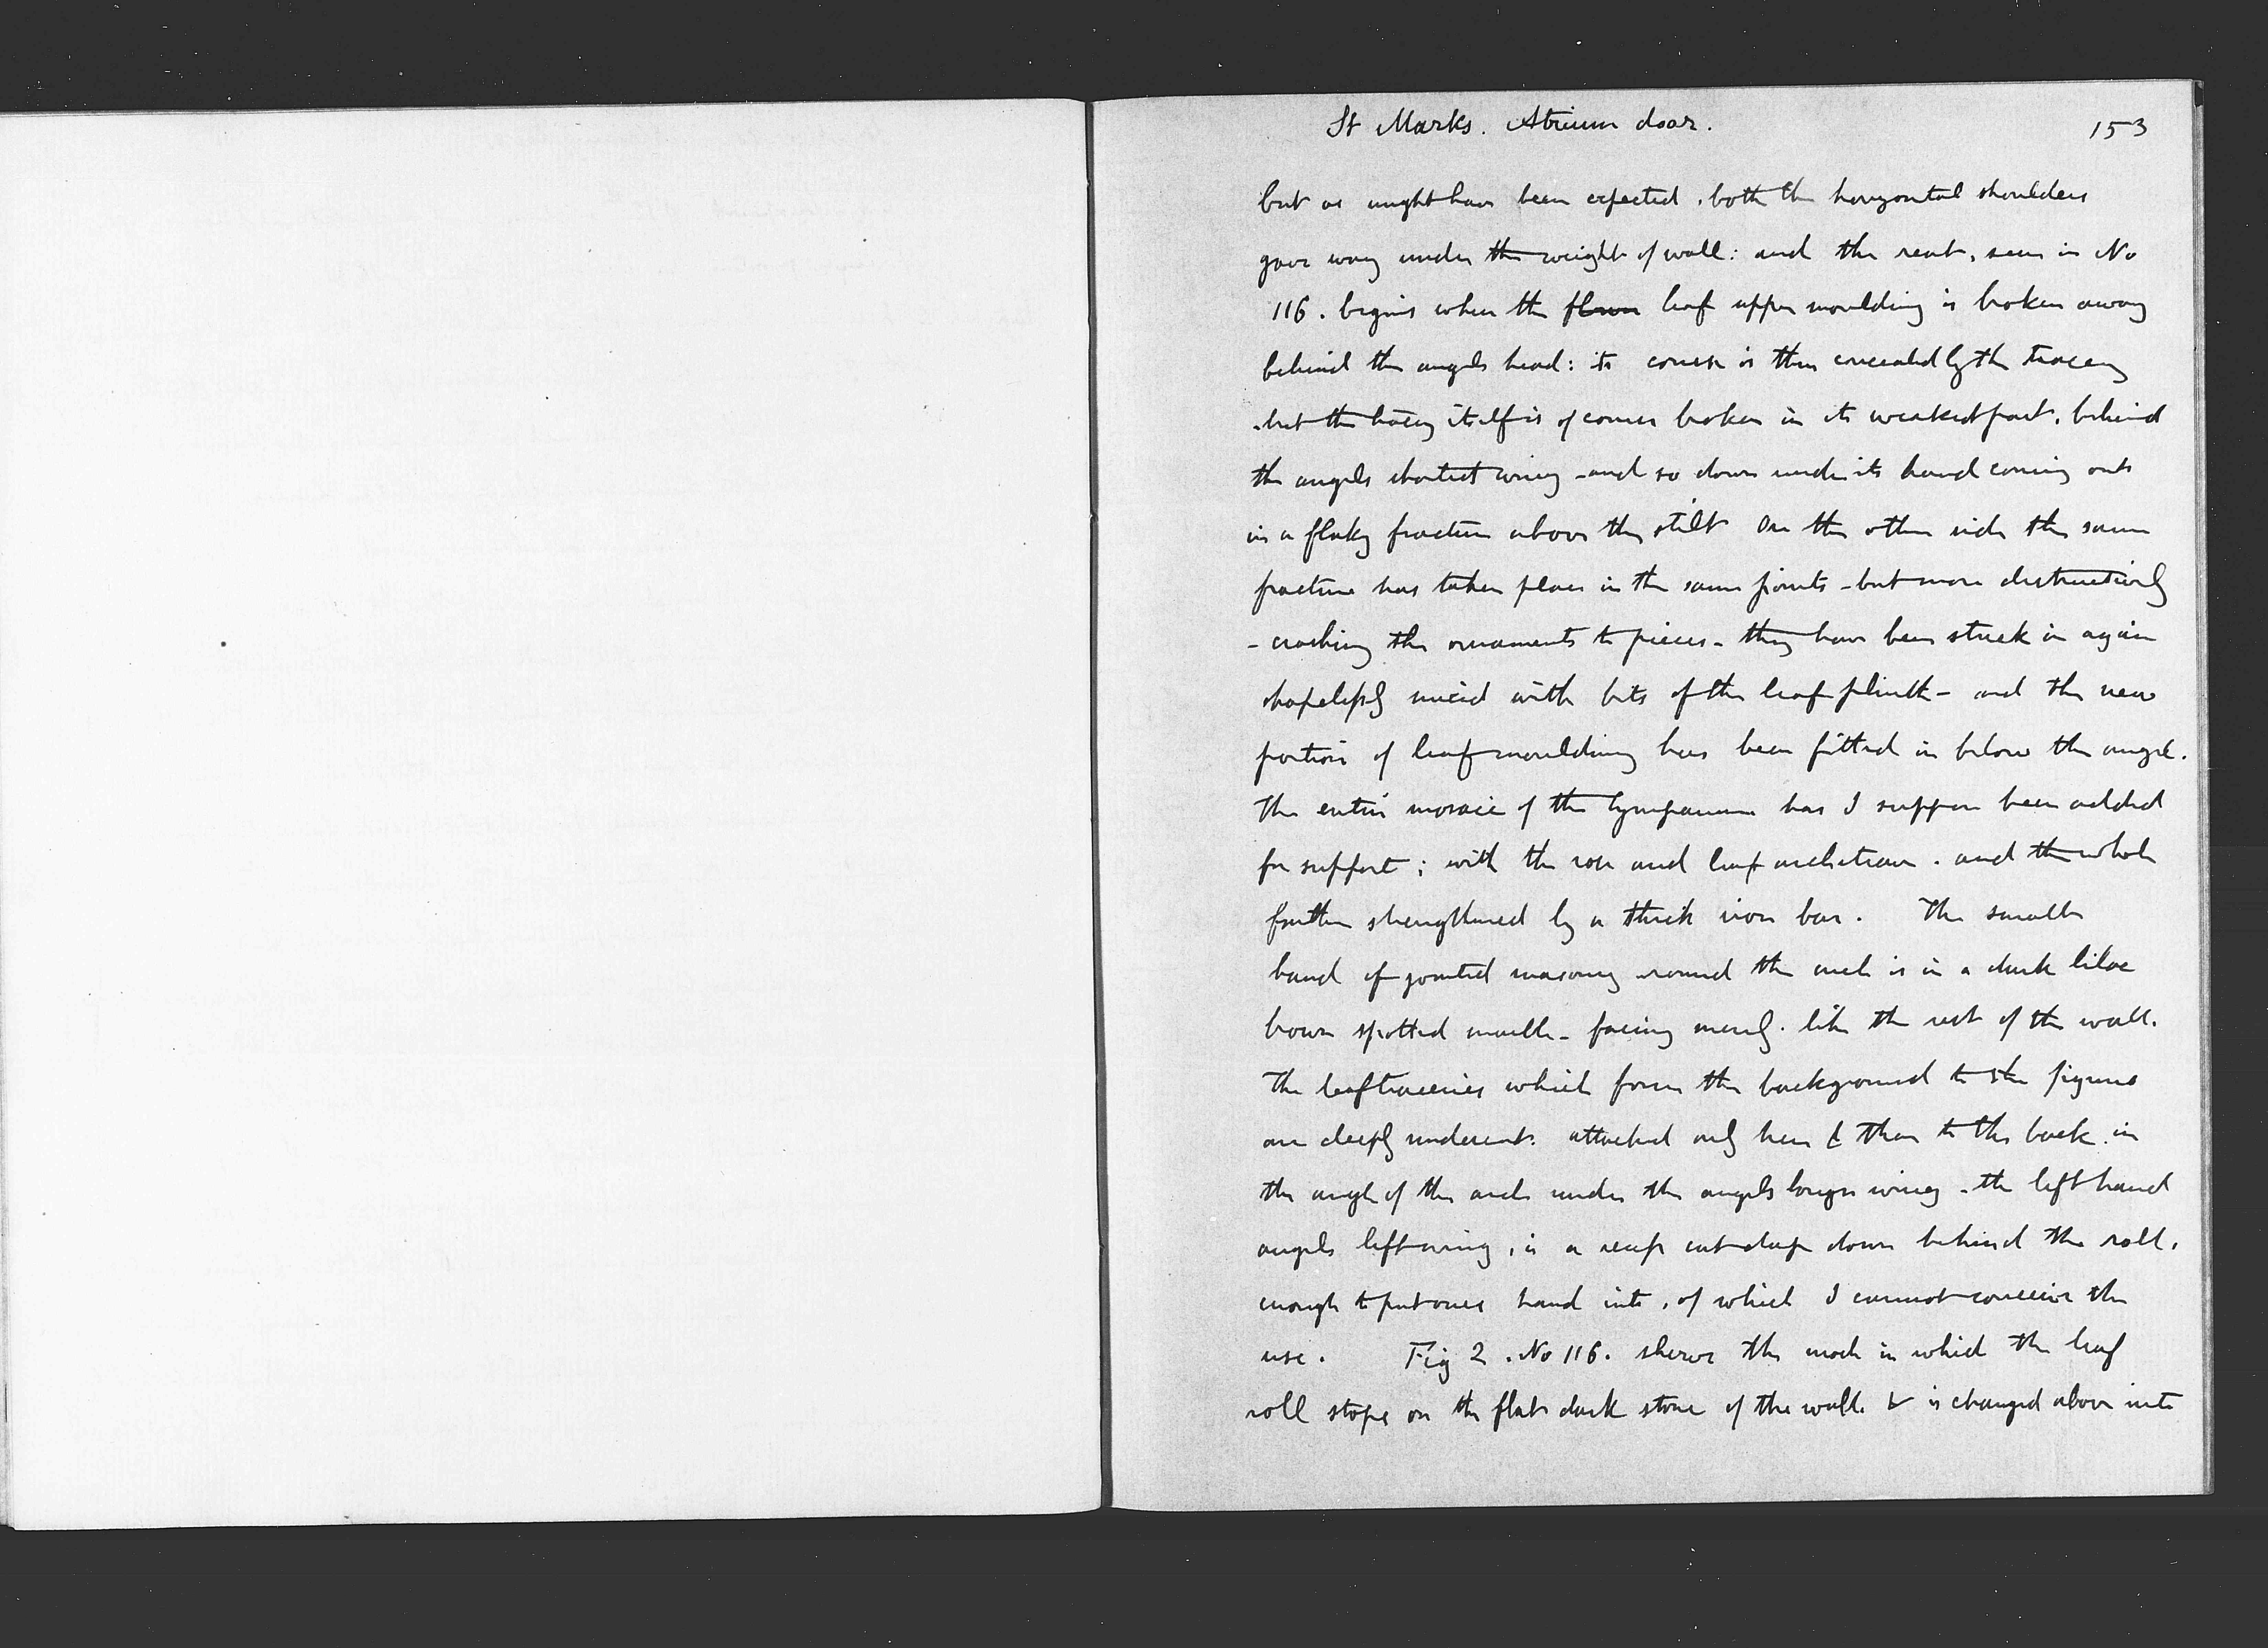 St Marks. Atrium door. 153
but as might have been expected. both the horizontal shoulders
gave way under the weight of wall: and the rent, seen in No
116. begins where the flower leaf upper moulding is broken away
behind the angels head: its course is then concealed by the tracery
but the tracery itself is of course broken in its weakest part, behind
the angels shortest wing - and so down under its hand coming out
in a flaky fracture above the stilt On the other side the same
fracture has taken place in the same points - but more destructively
- crashing the ornaments to pieces - they have been stuck in again
hopelessly mixed with bits of the leaf plinth - and the new
portion of leaf moulding has been fitted in below the angel.
The entire mosaic of the tympanum has I suppose been added
for support; with the rose and leaf architrave. and the whole
further strengthened by a thick iron bar. The smaller
band of jointed masonry round the arch is in a dark lilac
brown spotted marble - facing merely. like the rest of the wall.
The leaf traceries which form the background to the figures
are deeply undercut. attached only here & there to the back. in
the angle of the arch under the angels longer wing - the left hand
angels left wing, is a recess cut deep down behind the roll,
enough to put ones hand into, of which I cannot conceive the
use. Fig 2. No 116. shews the mode in which the leaf
roll stops on the flat dark stone of the wall. & is changed above into